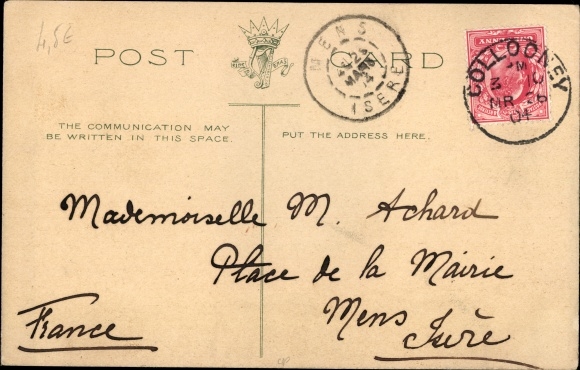 4,5€
POST CARD
MENS
ISERE
COLLOONEY
THE COMMUNICATION MAY
BE WRITTEN IN THIS SPACE.
PUT THE ADDRESS HERE.
Mademoiselle M. Achard
Place de la Mairie
Mens
Isère
France